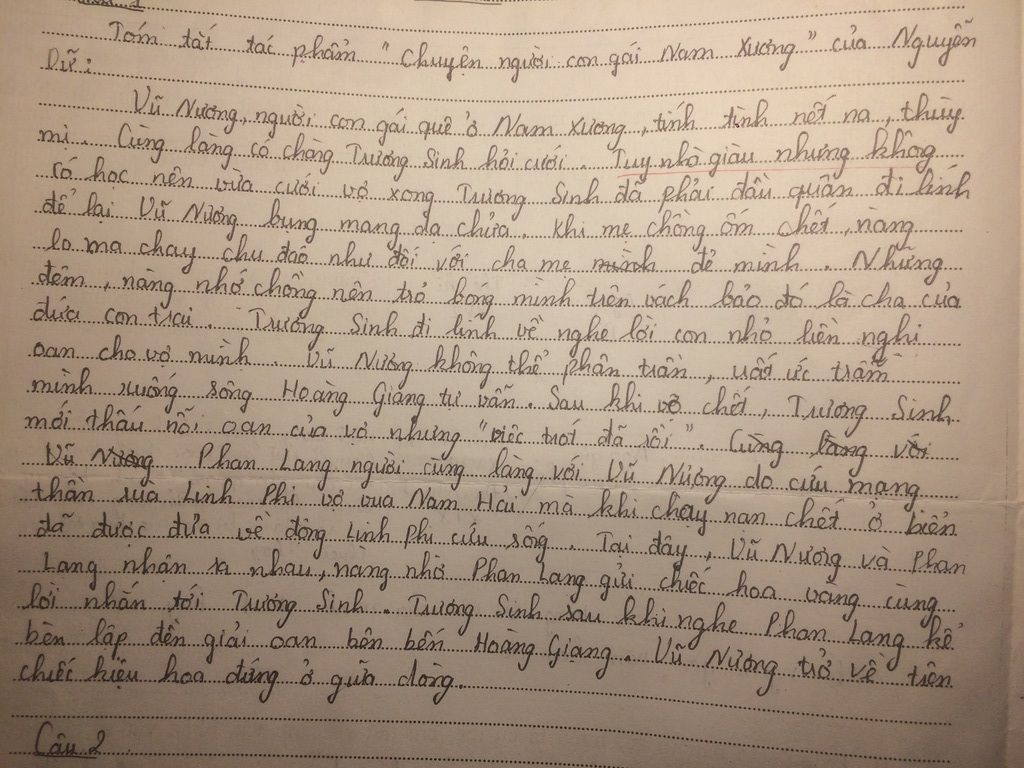 Tóm tắt tác phẩm "Chuyện người con gái Nam Xương" của Nguyễn
Dữ:
Vũ Nương, người con gái quê ở Nam Xương, tính tình nết na, thùy
mị. Cùng làng có chàng Trương Sinh hỏi cưới. Tuy nhà giàu nhưng không
có học nên vừa cưới vợ xong Trương Sinh đã phải đầu quân đi lính
để lại Vũ Nương bụng mang dạ chửa. Khi mẹ chồng ốm chết, nàng
lo ma chay chu đáo như đối với cha mẹ mình đẻ mình. Những
đêm, nàng nhớ chồng nên trỏ bóng mình trên vách bảo đó là cha của
đứa con trai. Trương Sinh đi lính về nghe lời con nhỏ liền nghi
oan cho vợ mình. Vũ Nương không thể phân trần, uất ức trẫm
mình xuống sông Hoàng Giang tự vẫn. Sau khi vợ chết, Trương Sinh
mới thấu nỗi oan của vợ nhưng "việc trót đã rồi". Cùng làng với
Vũ Nương Phan Lang người cùng làng với Vũ Nương do cứu mạng
thần rùa Linh Phi vợ vua Nam Hải mà khi chạy nạn chết ở biển
đã được đưa về động Linh Phi cứu sống. Tại đây, Vũ Nương và Phan
Lang nhận ra nhau, nàng nhờ Phan Lang gửi chiếc hoa vàng cùng
lời nhắn tới Trương Sinh. Trương Sinh sau khi nghe Phan Lang kể
bèn lập đền giải oan bên bến Hoàng Giang. Vũ Nương trở về trên
chiếc kiệu hoa đứng ở giữa dòng.
Câu 2